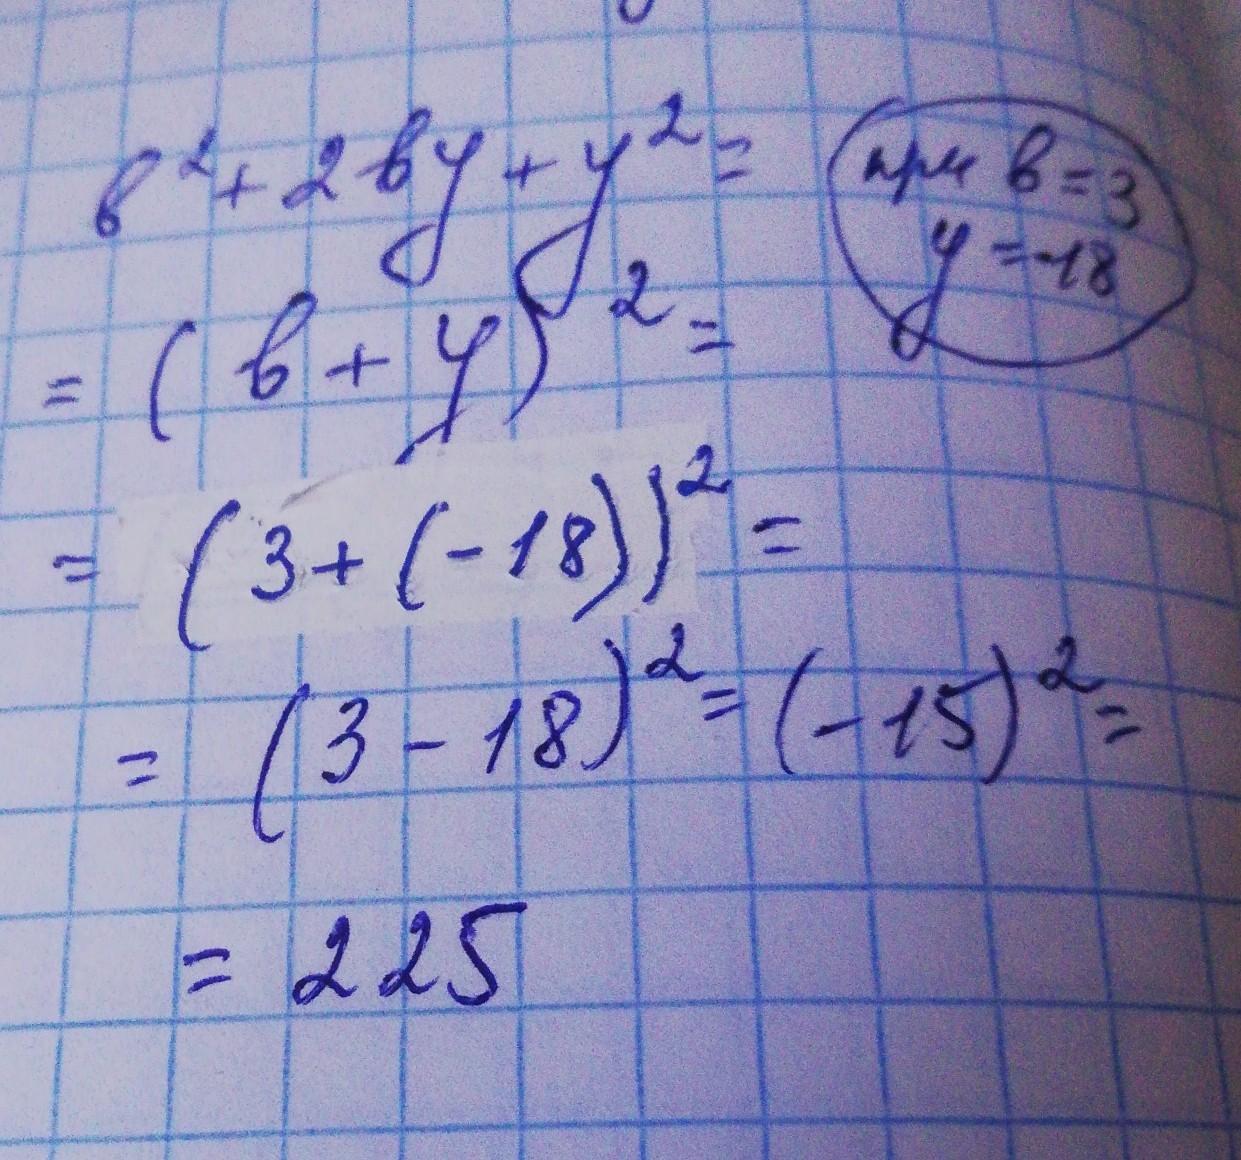 в² + 2ву + у² =
при в = 3
у = -18
= (в + у)² =
= (3 + (-18))² =
= (3 - 18)² = (-15)² =
= 225